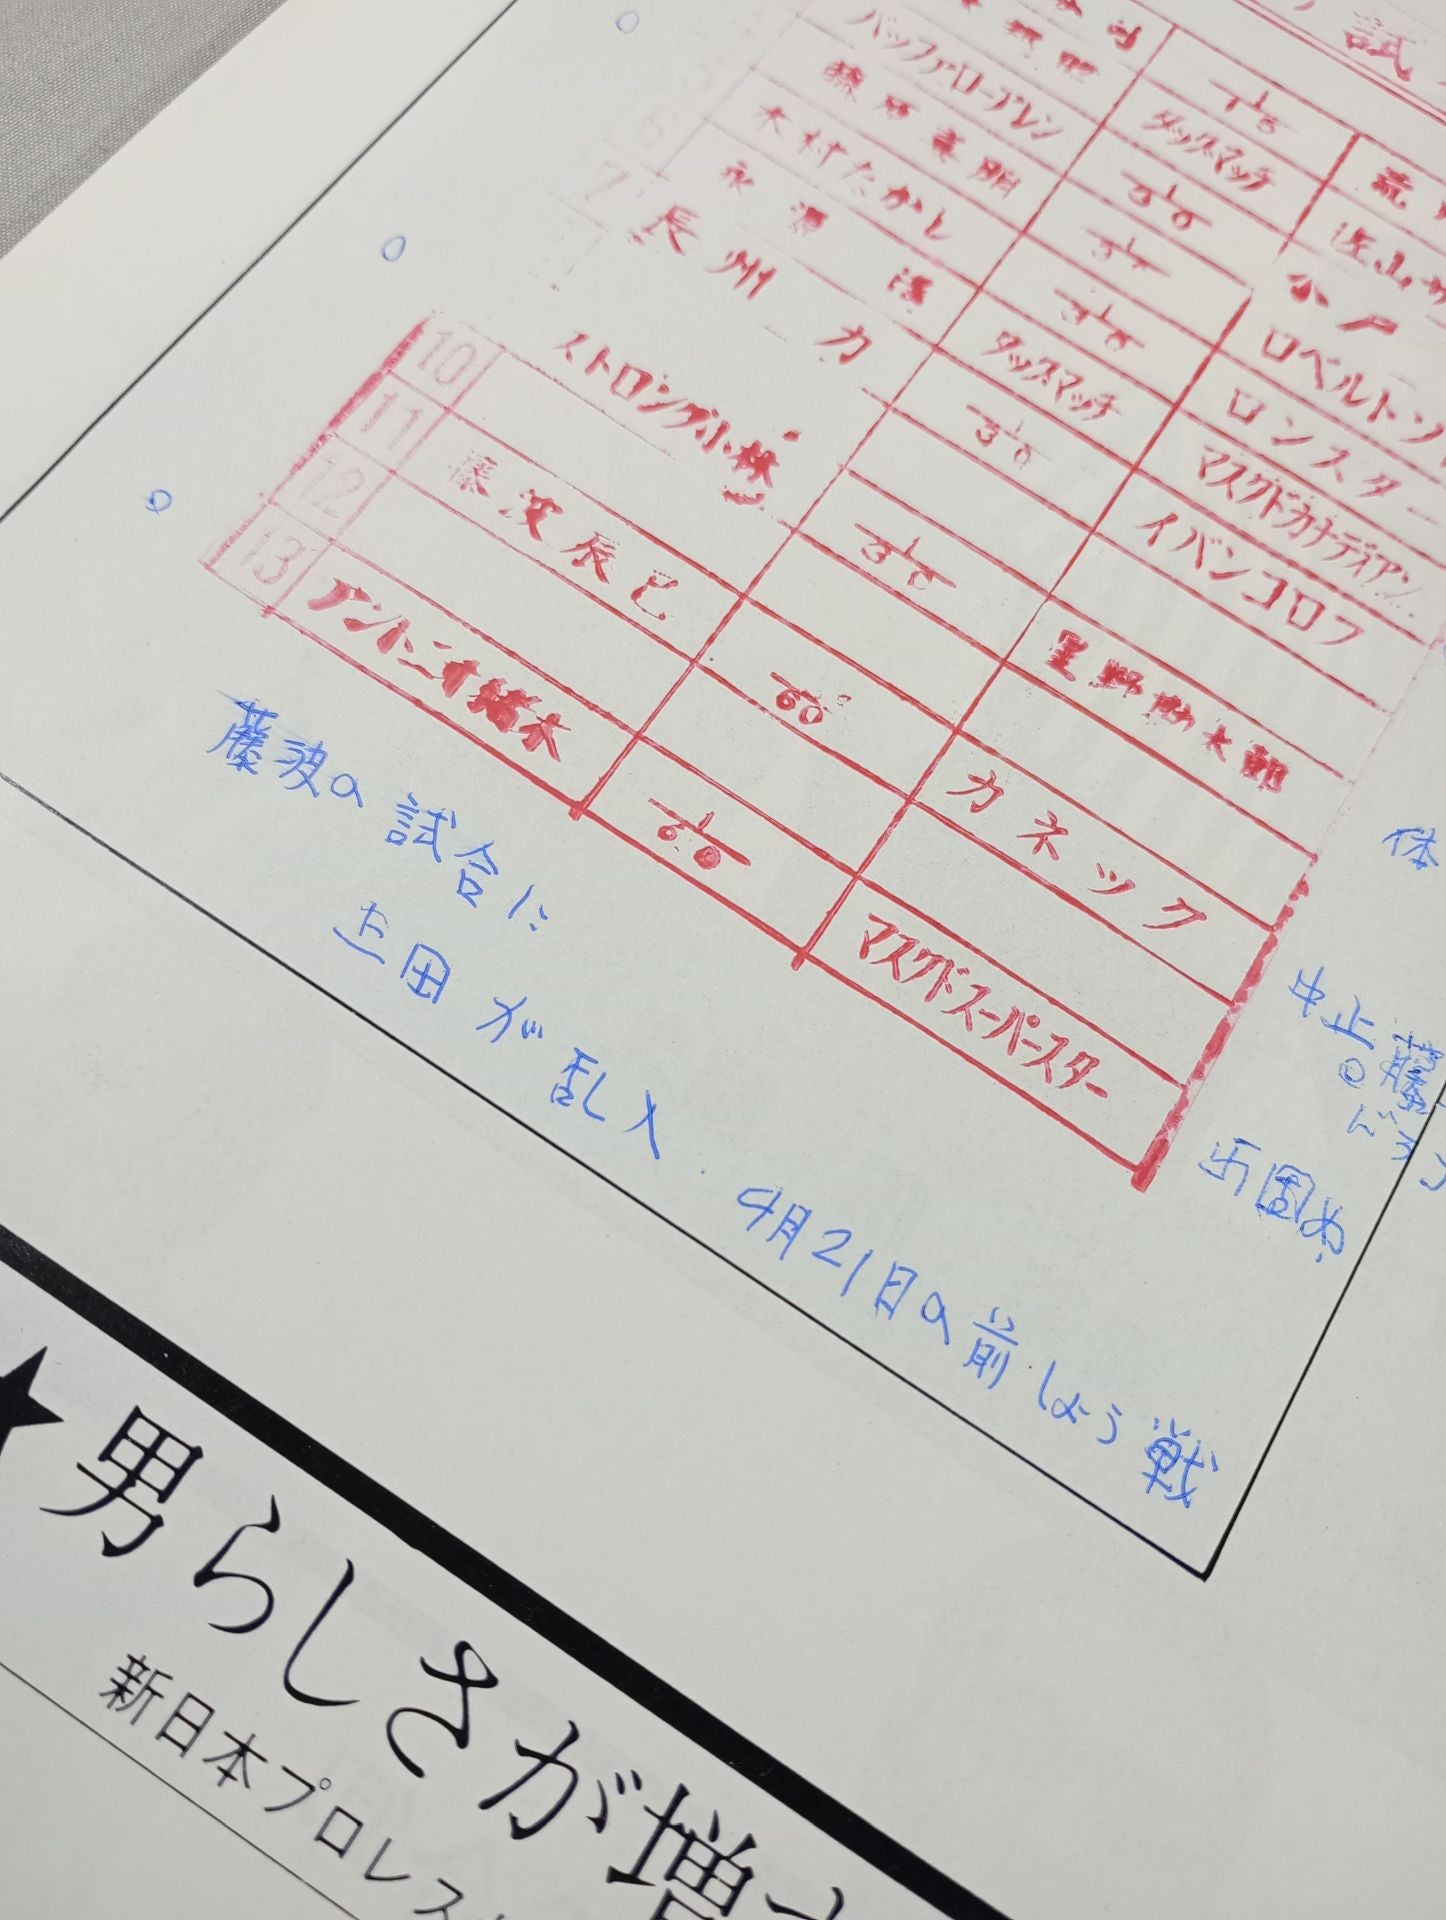 試
1/15
バッファローアレン
タッグマッチ
荒
5
藤原喜明
1/30
6
木村たかし
1/30
小戸
7
永源遙
1/30
ロベルトソ
長州力
タッグマッチ
ロンスター
1/30
マスクドカナディアン
10
ストロング小林
イバンコロフ
11
1/30
12
藤波辰巳
星野勘太郎
13
1/60
カネック
アントニオ猪木
1/60
マスクドスーパースター
体
中止
藤
藤波の試合に
上田が乱入
4月21日の前しょう戦
固め
★男らしさが増
新日本プロレス